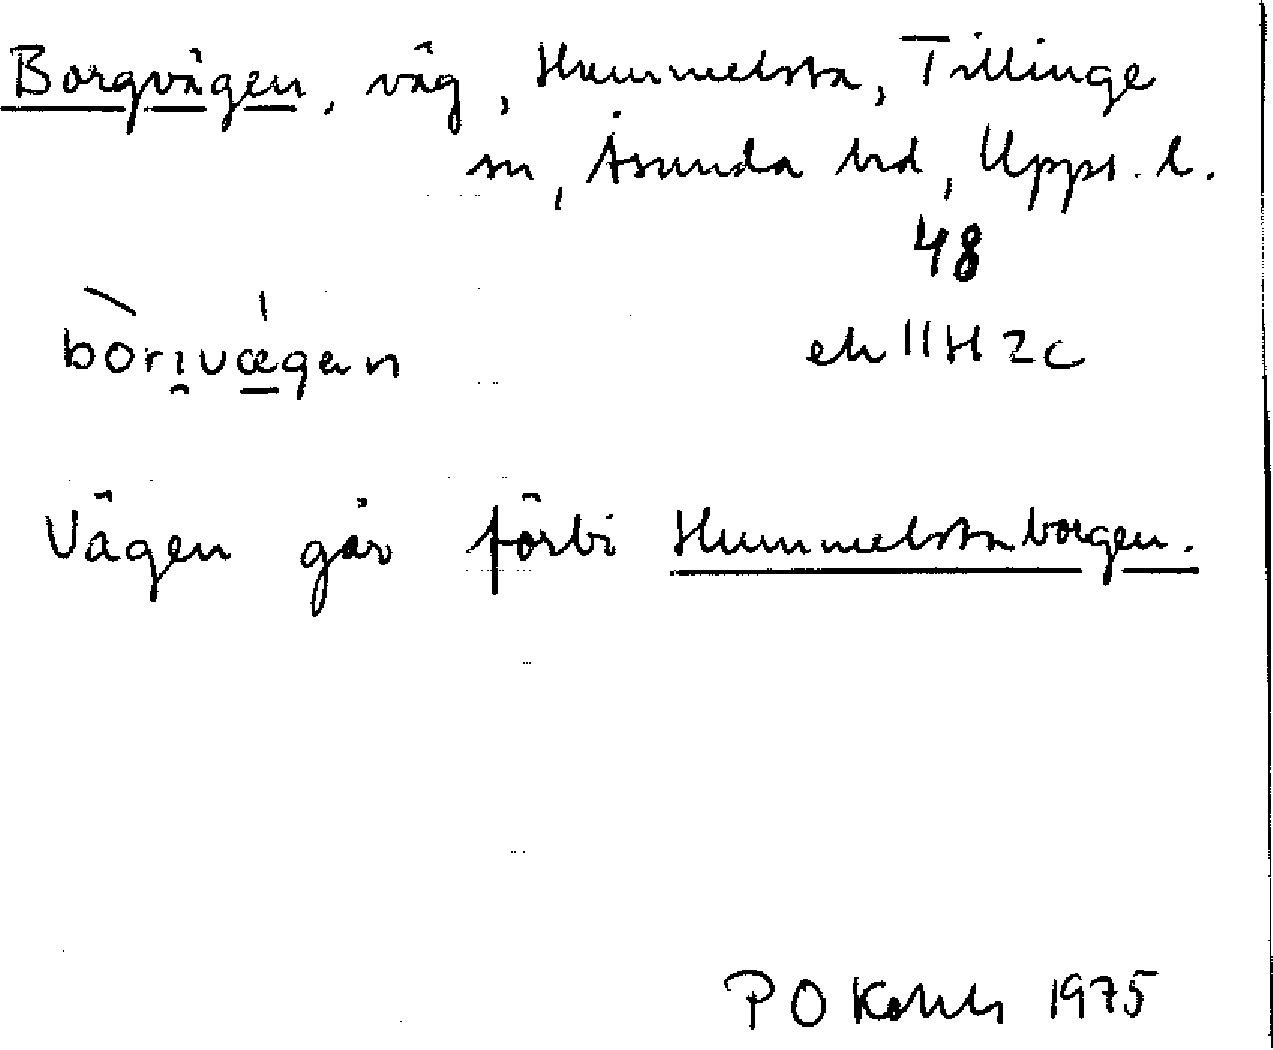 Borgvägen, väg, Hummelsta, Tillinge
sn, Åsunda hd, Upps. l.
48
bòri̯vǽgen
ek 11H 2c
Vägen går förbi Hummelstaborgen.
P O 1975